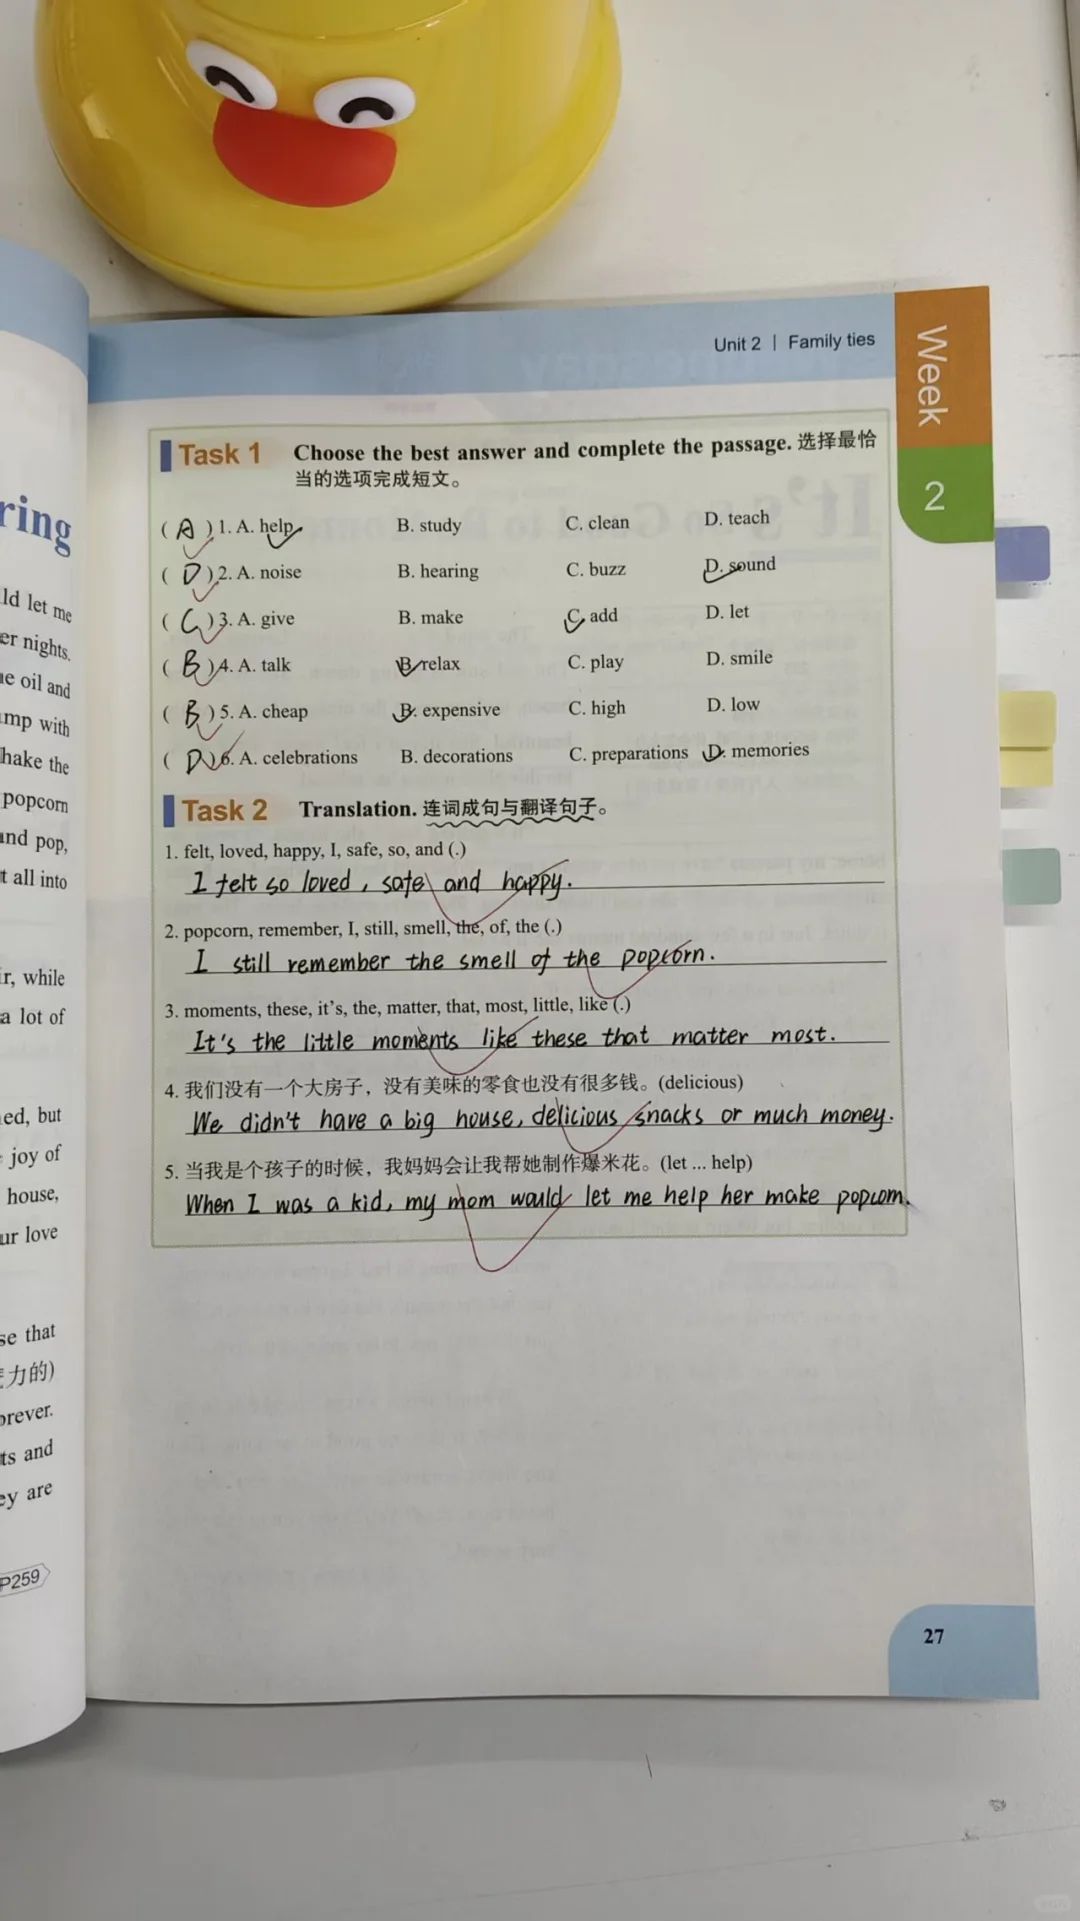 Unit 2 | Family ties
Week
2
Task 1 Choose the best answer and complete the passage. 选择最恰
当的选项完成短文。
( A ) 1. A. help B. study C. clean D. teach
( D ) 2. A. noise B. hearing C. buzz D. sound
( C ) 3. A. give B. make C. add D. let
( B ) 4. A. talk B. relax C. play D. smile
( B ) 5. A. cheap B. expensive C. high D. low
( D ) 6. A. celebrations B. decorations C. preparations D. memories
Task 2 Translation. 连词成句与翻译句子。
1. felt, loved, happy, I, safe, so, and (.)
I felt so loved, safe and happy.
2. popcorn, remember, I, still, smell, the, of, the (.)
I still remember the smell of the popcorn.
3. moments, these, it's, the, matter, that, most, little, like (.)
It's the little moments like these that matter most.
4. 我们没有一个大房子，没有美味的零食也没有很多钱。(delicious)
We didn't have a big house, delicious snacks or much money.
5. 当我是个孩子的时候，我妈妈会让我帮她制作爆米花。(let ... help)
When I was a kid, my mom would let me help her make popcorn.
27
ring
ld let me
er nights.
e oil and
mp with
hake the
popcorn
and pop,
t all into
ir, while
a lot of
ed, but
joy of
house,
ur love
se that
力的)
orever.
ts and
ey are
P259